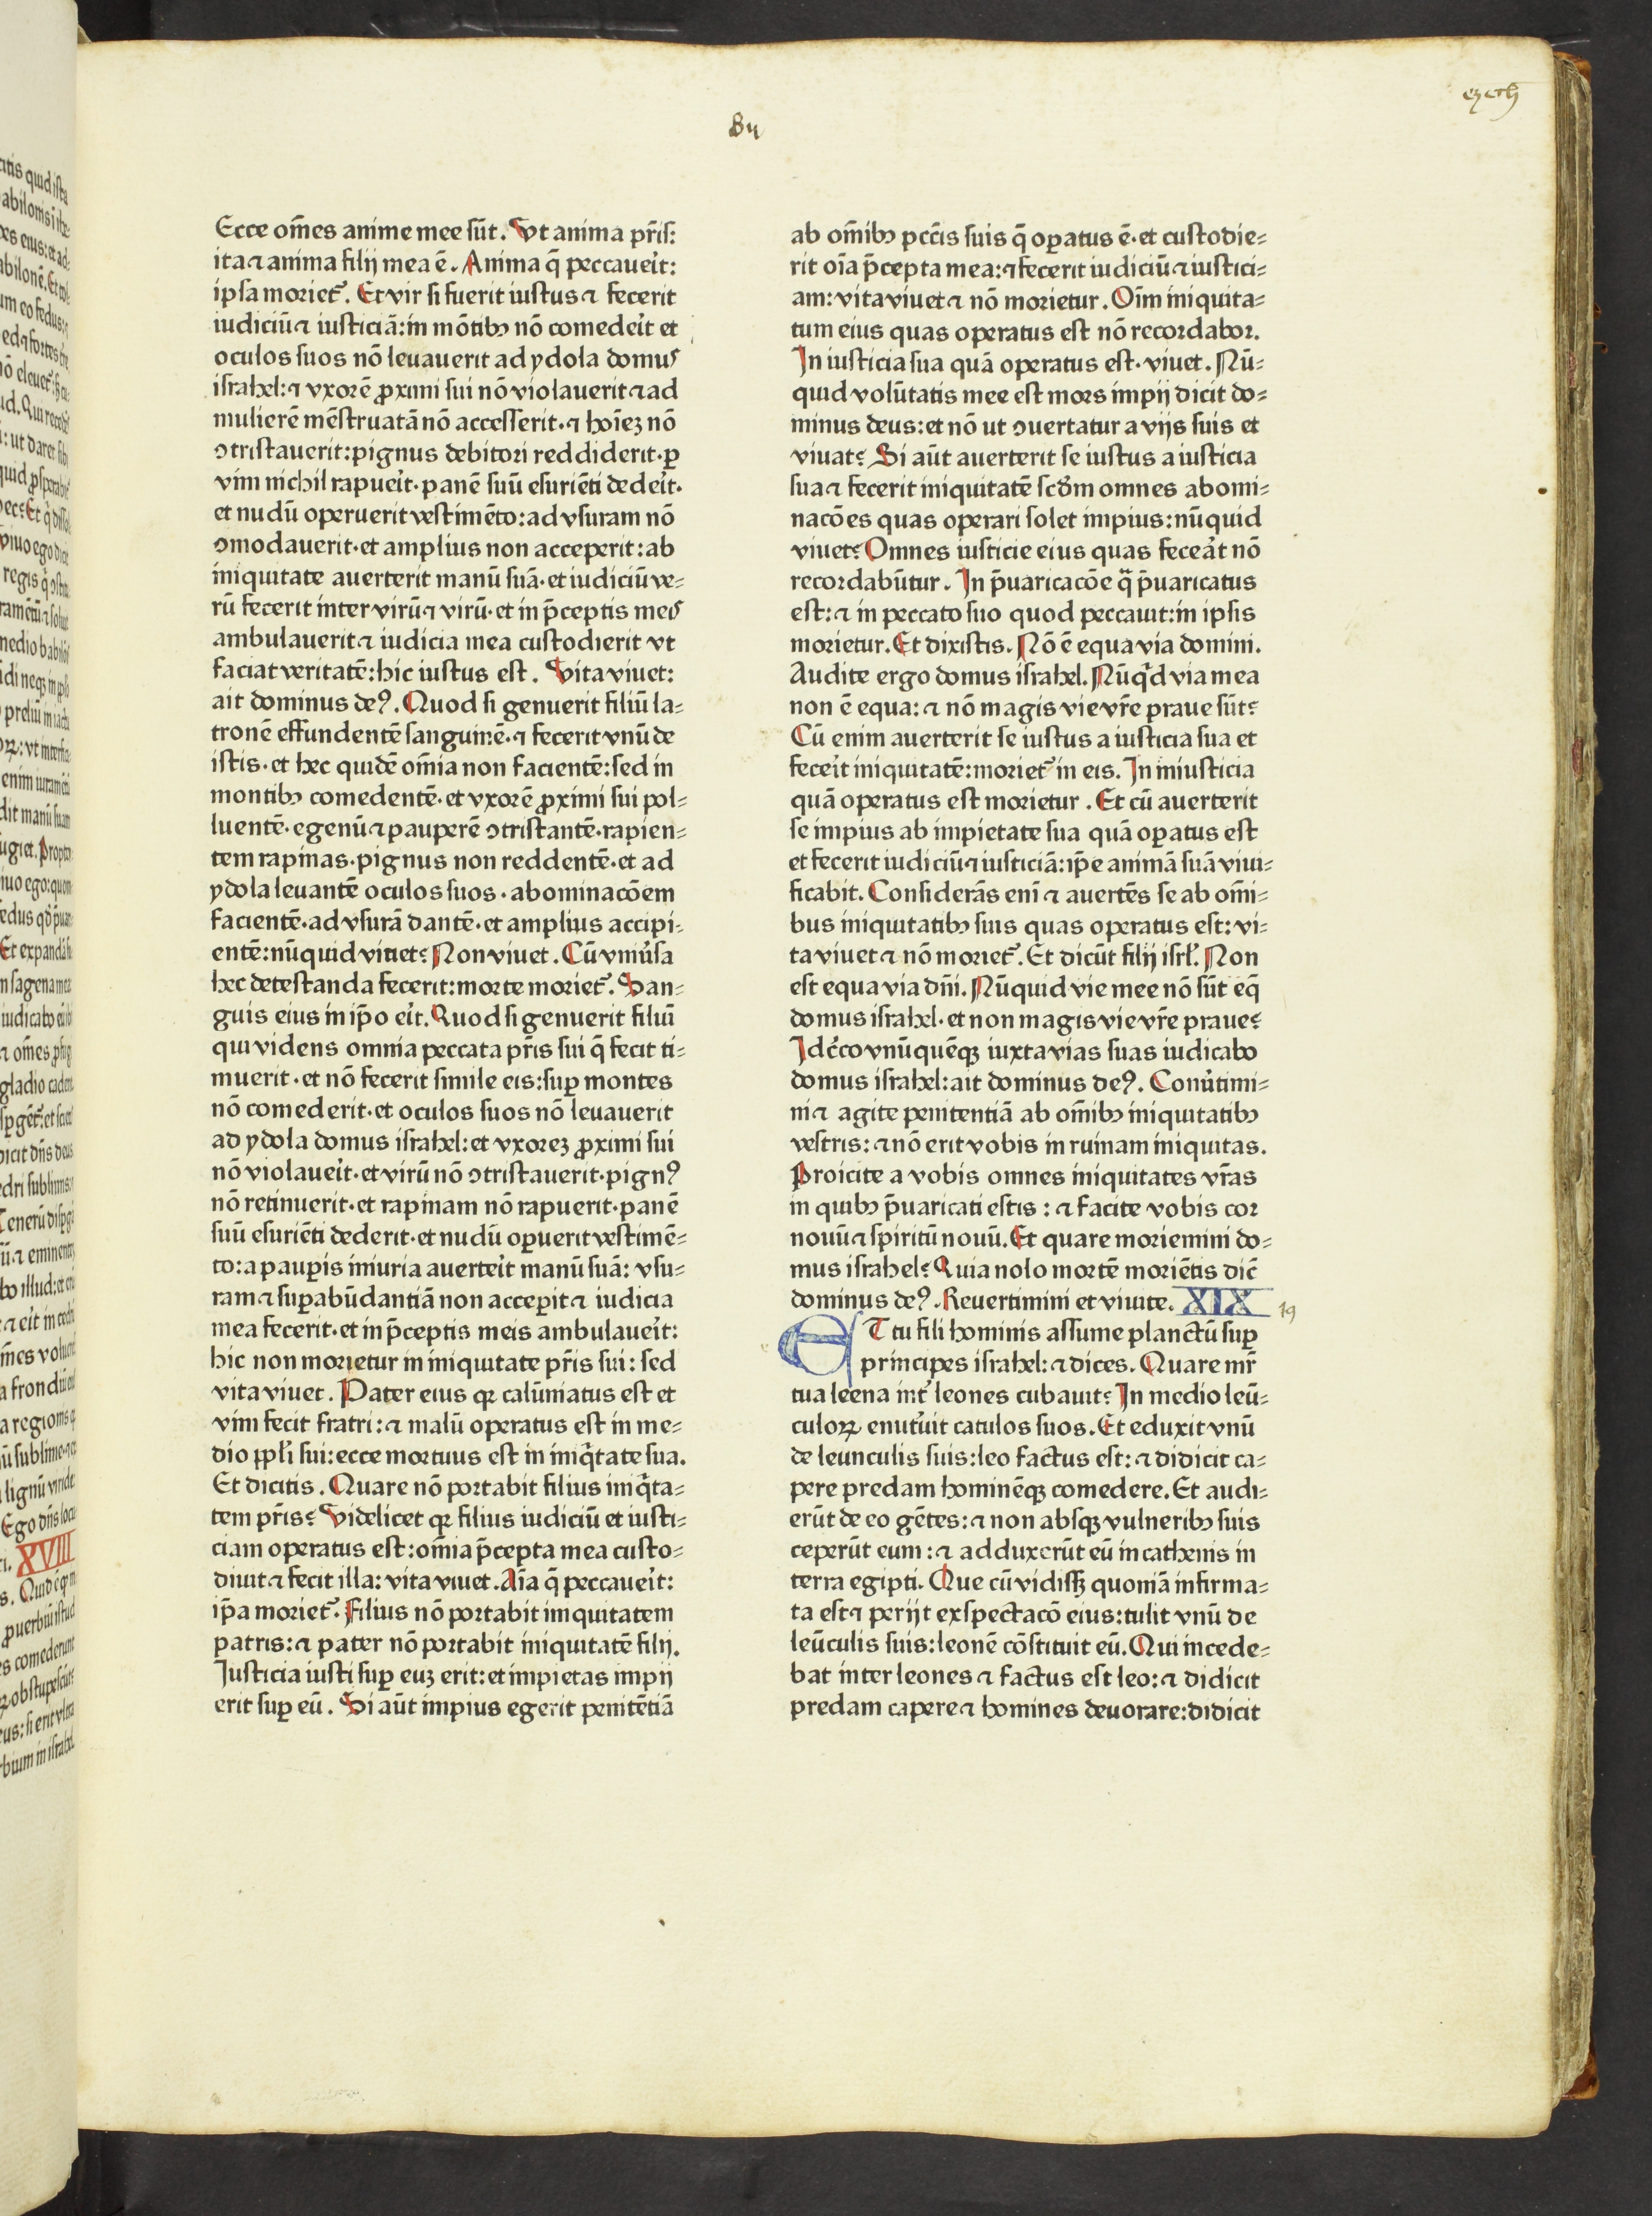 ezech
Bij
Ecce om̄es anime mee sūt. Ut anima pr̄is:
ita ⁊ anima filij mea ē. Anima q̄ peccaueı̓t:
ipsa moriet᷑. Et vir si fuerit iustus ⁊ fecerit
iudiciū ⁊ iusticiā: in mōtibꝫ nō comedeı̓t et
oculos suos nō leuauerit ad ydola domus
israhel: ⁊ vxorē ꝓximi sui nō violauerit ⁊ ad
mulierē mēstruatā nō accesserit· ⁊ hoı̄eꝫ nō
ꝯtristauerit: pignus debitori reddiderit· ꝑ
vim nichil rapueı̓t· panē suū esuriēti dedeı̓t·
et nudū operuerit vestimēto: ad vsuram nō
ꝯmodauerit· et amplius non acceperit: ab
iniquitate auerterit manū suā· et iudiciū ve⸗
rū fecerit inter virū ⁊ virū· et in p̄ceptis meis
ambulauerit ⁊ iudicia mea custodierit vt
faciat veritatē: hic iustus est. Vita viuet:
ait dominus deꝰ. Quod si genuerit filiū la⸗
tronē effundentē sanguinē· ⁊ fecerit vnū de
istis· et hec quidē om̄ia non facientē: sed in
montibꝫ comedentē· et vxorē ꝓximi sui pol⸗
luentē· egenū ⁊ pauperē ꝯtristantē· rapien⸗
tem rapinas· pignus non reddentē· et ad
ydola leuantē oculos suos· abominacōem
facientē· ad vsurā dantē· et amplius accipi⸗
entē: nūquid viuet? Non viuet. Cū vniu̓sa
hec detestanda fecerit: morte moriet᷑. San⸗
guis eius in ip̄o eı̓t. Quod si genuerit filiū
qui videns omnia peccata pr̄is sui q̄ fecit ti⸗
muerit· et nō fecerit simile eis: suꝑ montes
nō comederit· et oculos suos nō leuauerit
ad ydola domus israhel: et vxoreꝫ ꝓximi sui
nō violaueı̓t· et virū nō ꝯtristauerit· pignꝰ
nō retinuerit· et rapinam nō rapuerit· panē
suū esuriēti dederit· et nudū oꝑuerit vestimē⸗
to: a pauꝑis iniuria auerteı̓t manū suā: vsu⸗
ram ⁊ suꝑabūdantiā non acceꝑit ⁊ iudicia
mea fecerit· et in p̄ceptis meis ambulaueı̓t:
hic non morietur in iniquitate pr̄is sui: sed
vita viuet. Pater eius qꝛ calūniatus est et
vim fecit fratri: ⁊ malū operatus est in me⸗
dio ppl̓i sui: ecce mortuus est in iniqͥtate sua.
Et dicitis. Quare nō portabit filius iniqͥta⸗
tem pr̄is? Videlicet qꝛ filius iudiciū et iusti⸗
ciam operatus est: om̄ia p̄cepta mea custo⸗
diuit ⁊ fecit illa: vita viuet. Aı̄a q̄ peccaueı̓t:
ip̄a moriet᷑. Filius nō portabit iniquitatem
patris: ⁊ pater nō portabit iniquitatē filij.
Iusticia iusti suꝑ euꝫ erit: et impietas impij
erit suꝑ eū. Si aūt impius egerit penitētiā
ab om̄ibꝫ pcc̄is suis q̄ oꝑatus ē· et custodie⸗
rit oı̄a p̄cepta mea: ⁊ fecerit iudiciū ⁊ iustici⸗
am: vita viuet ⁊ nō morietur. Oı̄m iniquita⸗
tum eius quas operatus est nō recordabor.
In iusticia sua quā operatus est· viuet. Nū⸗
quid volūtatis mee est mors impij dicit do⸗
minus deus: et nō ut ꝯuertatur a vijs suis et
viuat? Si aūt auerterit se iustus a iusticia
sua ⁊ fecerit iniquitatē scd̓m omnes abomi⸗
nacōes quas operari solet impius: nūquid
viuet? Omnes iusticie eius quas fecea̓t nō
recordabūtur. In p̄uaricacōe qᷓ p̄uaricatus
est: ⁊ in peccato suo quod peccauit: in ipsis
morietur. Et dixistis. Nō ē equa via domini.
Audite ergo domus israhel. Nūqͥd via mea
non ē equa: ⁊ nō magis vie vr̄e praue sūt?
Cū enim auerterit se iustus a iusticia sua et
feceı̓t iniquitatē: moriet᷑ in eis. In iniusticia
quā operatus est morietur. Et cū auerterit
se impius ab impietate sua quā oꝑatus est
et fecerit iudiciū ⁊ iusticiā: ip̄e animā suā viui⸗
ficabit. Considerās enı̄ ⁊ auertēs se ab om̄i⸗
bus iniquitatibꝫ suis quas operatus est: vi⸗
ta viuet ⁊ nō moriet᷑. Et dicūt filij isrl̓. Non
est equa via dn̄i. Nūquid vie mee nō sūt eq̄
domus israhel· et non magis vie vr̄e praue?
Idc̓co vnūquēqꝫ iuxta vias suas iudicabo
domus israhel: ait dominus deꝰ. Conu̓timi⸗
ni ⁊ agite penitentiā ab om̄ibꝫ iniquitatibꝫ
vestris: ⁊ nō erit vobis in ruinam iniquitas.
Proicite a vobis omnes iniquitates vr̄as
in quibꝫ p̄uaricati estis: ⁊ facite vobis cor
nouū ⁊ spiritū nouū. Et quare moriemini do⸗
mus israhel? Quia nolo mortē moriētis dic̄
dominus deꝰ. Reuertimini et viuite. XIX
19
ET tu fili hominis assume planctū suꝑ
principes israhel: ⁊ dices. Quare mr̄
tua leena int᷑ leones cubauit? In medio leū⸗
culoꝝ enut᷑uit catulos suos. Et eduxit vnū
de leunculis suis: leo factus est: ⁊ didicit ca⸗
pere predam hominēqꝫ comedere. Et audi⸗
erūt de eo gētes: ⁊ non absqꝫ vulneribꝫ suis
ceperūt eum: ⁊ adduxerūt eū in cathenis in
terra egipti. Que cū vidissꝫ quoniā infirma⸗
ta est ⁊ perijt exspectacō eius: tulit vnū de
leūculis suis: leonē cōstituit eū. Qui incede⸗
bat inter leones ⁊ factus est leo: ⁊ didicit
predam capere ⁊ homines deuorare: didicit